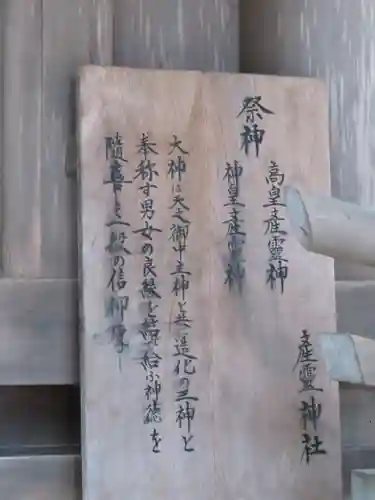 産霊神社
祭神
高皇産霊神
神皇産霊神
大神は天之御中主神と共に造化の三神と
奉称す男女の良縁を結給ふ神徳を
随喜と一般の信仰厚し